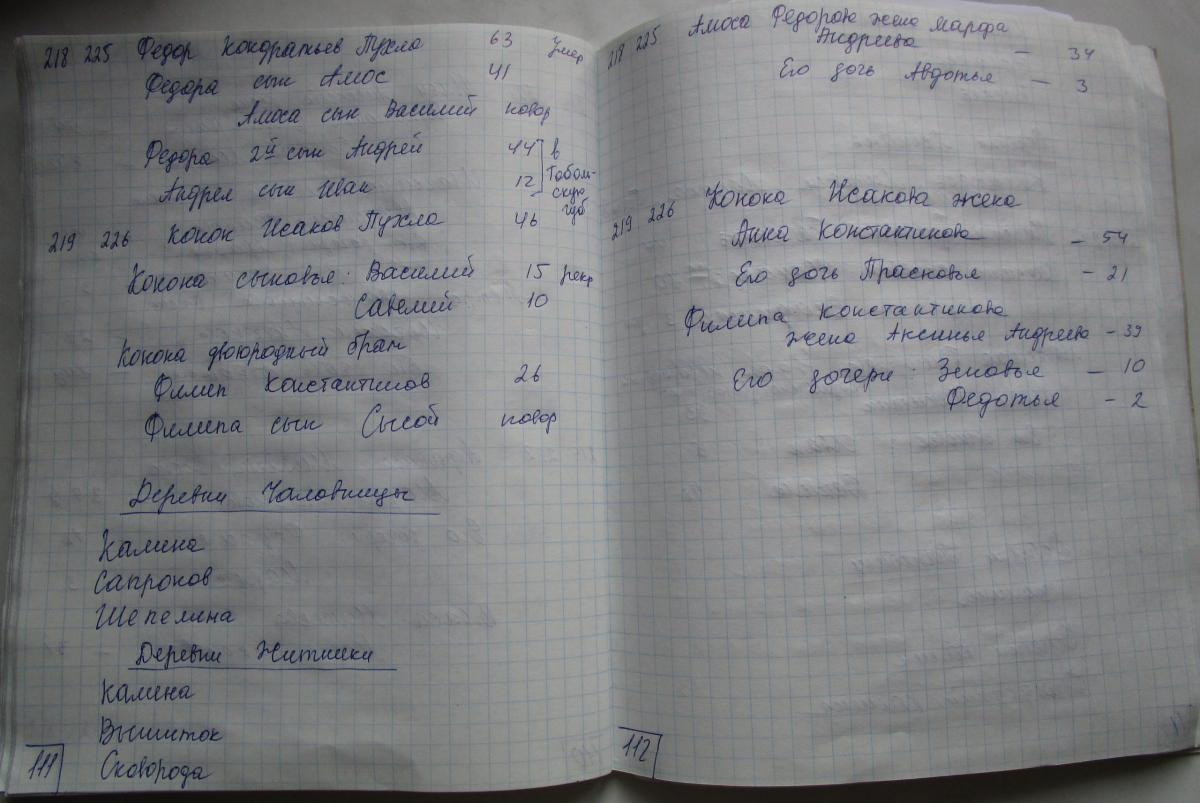 218 225 Федор Кондратьев Пухла 63 Умер
Федора сын Амос 41
Амоса сын Василий новор
Федора 2й сын Андрей 44 в
Андрея сын Иван 12 Тоболь-
скую
губ
219 226 Конон Исаков Пухла 46
Конона сыновья: Василий 15 рекр
Савелий 10
Конона двоюродный брат
Филип Константинов 26
Филипа сын Сысой новор
Деревни Чаловницы
Калина
Сапронов
Шепелина
Деревни Житники
Калина
Вышиток
Сковорода
111
218 225 Амоса Федорова жена Марфа
Андреева — 34
Его дочь Авдотья — 3
219 226 Конона Исакова жена
Анна Константинова - 54
Его дочь Прасковья - 21
Филипа Константинова
жена Аксинья Андреева - 39
Его дочери: Зиновья - 10
Федотья - 2
112